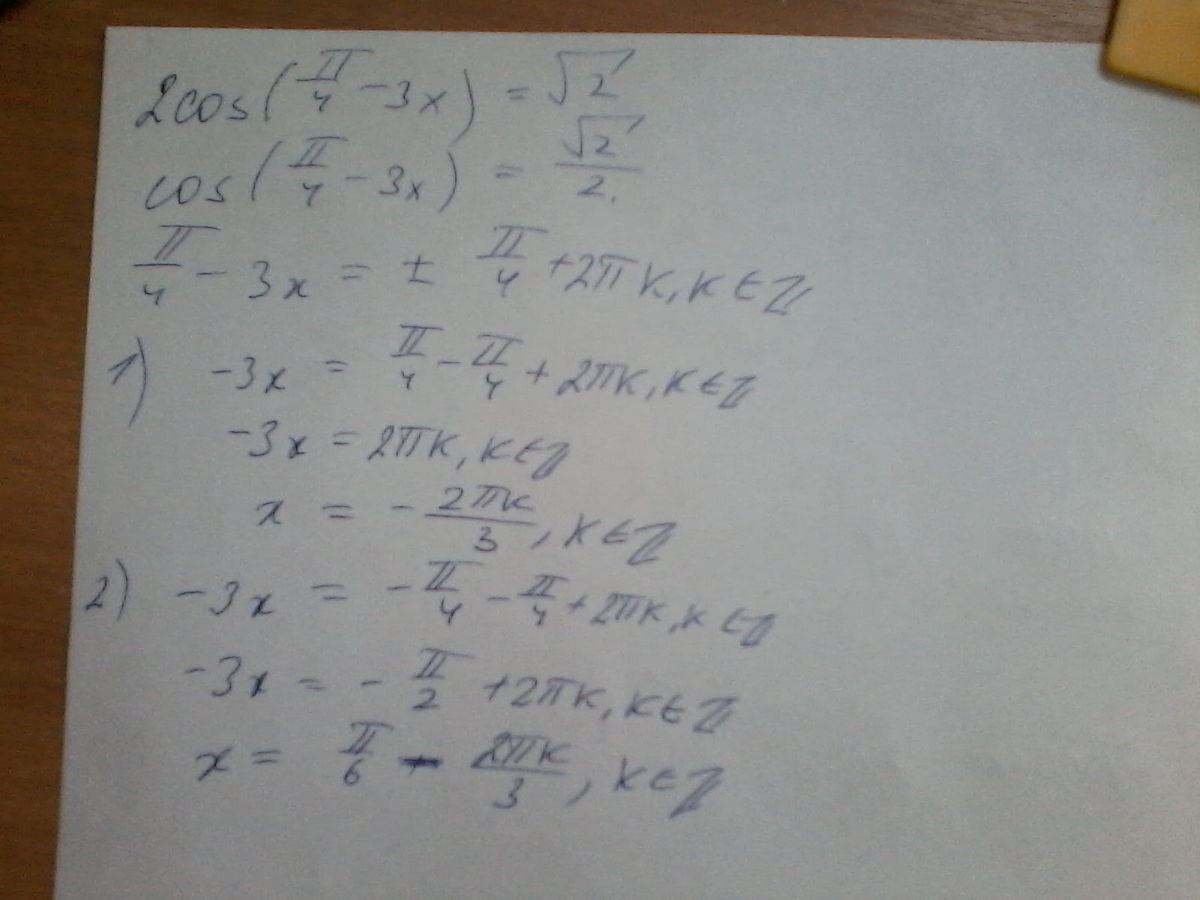 2cos(π/4 - 3x) = √2
cos(π/4 - 3x) = √2/2.
π/4 - 3x = ± π/4 + 2πk, k ∈ ℤ
1) -3x = π/4 - π/4 + 2πk, k ∈ ℤ
-3x = 2πk, k ∈ ℤ
x = - 2πk/3, k ∈ ℤ
2) -3x = - π/4 - π/4 + 2πk, k ∈ ℤ
-3x = - π/2 + 2πk, k ∈ ℤ
x = π/6 - 2πk/3, k ∈ ℤ